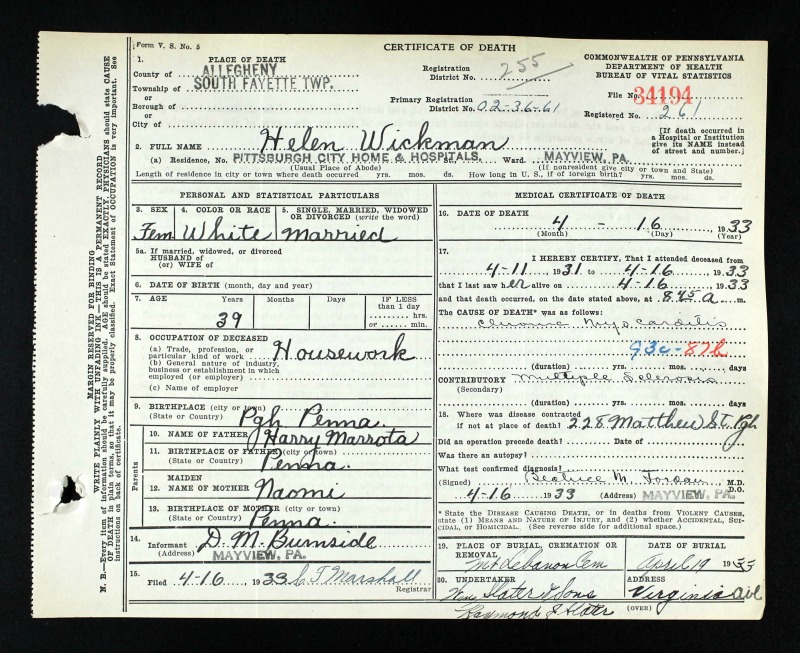 Form V. S. No. 5
CERTIFICATE OF DEATH
1. PLACE OF DEATH
County of ALLEGHENY
Township of SOUTH FAYETTE TWP.
or
Borough of
or
City of
Registration District No. 255
Primary Registration District No. 02-36-61
COMMONWEALTH OF PENNSYLVANIA
DEPARTMENT OF HEALTH
BUREAU OF VITAL STATISTICS
File No. 34194
Registered No. 261
[If death occurred in a Hospital or Institution give its NAME instead of street and number.]
2. FULL NAME Helen Wickman
(a) Residence, No. PITTSBURGH CITY HOME & HOSPITALS. Ward. MAYVIEW, PA.
(Usual Place of Abode) (If nonresident give city or town and State)
Length of residence in city or town where death occurred yrs. mos. ds. How long in U. S., if of foreign birth? yrs. mos. ds.
PERSONAL AND STATISTICAL PARTICULARS
3. SEX 4. COLOR OR RACE 5. SINGLE, MARRIED, WIDOWED OR DIVORCED (write the word)
Fem White Married
5a. If married, widowed, or divorced
HUSBAND of
(or) WIFE of
6. DATE OF BIRTH (month, day and year)
7. AGE Years Months Days IF LESS than 1 day
39 hrs.
or min.
8. OCCUPATION OF DECEASED
(a) Trade, profession, or particular kind of work Housework
(b) General nature of industry, business or establishment in which employed (or employer)
(c) Name of employer
9. BIRTHPLACE (city or town)
(State or Country) Pgh Penna.
Parents
10. NAME OF FATHER Harry Marrota
11. BIRTHPLACE OF FATHER (city or town)
(State or Country) Penna.
12. MAIDEN NAME OF MOTHER Naomi
13. BIRTHPLACE OF MOTHER (city or town)
(State or Country) Penna.
14. Informant D. M. Burnside
(Address) MAYVIEW, PA.
15. Filed 4-16 1933 C T Marshall
Registrar
MEDICAL CERTIFICATE OF DEATH
16. DATE OF DEATH 4 - 16 1933
(Month) (Day) (Year)
17. I HEREBY CERTIFY, That I attended deceased from
4-11 1931 to 4-16 1933
that I last saw her alive on 4-16 1933
and that death occurred, on the date stated above, at 8.45 a m.
The CAUSE OF DEATH* was as follows:
Chronic Myocarditis
93c-87b
(duration) yrs. mos. days
CONTRIBUTORY Multiple Sclerosis
(Secondary)
(duration) yrs. mos. days
18. Where was disease contracted
if not at place of death? 228 Matthew St. Pgh
Did an operation precede death? Date of
Was there an autopsy?
What test confirmed diagnosis?
(Signed) Beatrice M. M.D.
D.O.
4-16 1933 (Address) MAYVIEW, PA.
* State the DISEASE CAUSING DEATH, or in deaths from VIOLENT CAUSES, state (1) MEANS AND NATURE OF INJURY, and (2) whether ACCIDENTAL, SUICIDAL, or HOMICIDAL. (See reverse side for additional space.)
19. PLACE OF BURIAL, CREMATION OR REMOVAL DATE OF BURIAL
Mt Lebanon Cem April 19 1933
20. UNDERTAKER ADDRESS
Wm Slater & Sons Virginia Ave
Raymond J Slater (OVER)
MARGIN RESERVED FOR BINDING
WRITE PLAINLY WITH UNFADING INK—THIS IS A PERMANENT RECORD
N. B.—Every item of information should be carefully supplied. AGE should be stated EXACTLY. PHYSICIANS should state CAUSE OF DEATH in plain terms, so that it may be properly classified. Exact Statement of OCCUPATION is very important. See instructions on back of certificate.